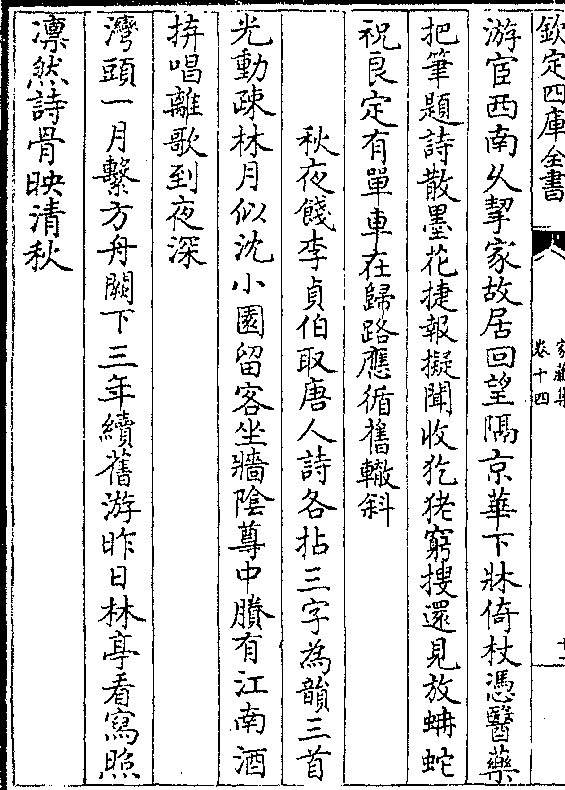 欽定四庫全書
家藏集
卷十四
游宦西南久挈家故居回望隔京華下牀倚杖憑醫藥
把筆題詩散墨花捷報擬聞收犵狫窮搜還見放蚺蛇
祝良定有單車在歸路應循舊轍斜
秋夜餞李貞伯取唐人詩各拈三字為韻三首
光動疎林月似沈小園留客坐牆陰尊中賸有江南酒
拚唱離歌到夜深
灣頭一月繫方舟闕下三年續舊游昨日林亭看寫照
凛然詩骨映清秋